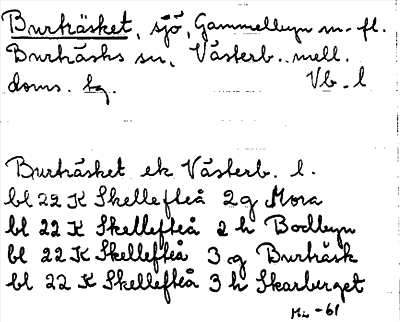 Burträsket, sjö, Gammelbyn m. fl.
Burträsks sn, Västerb. mell.
doms. lg. Vb. l
Burträsket ek Västerb. l.
bl 22 K Skellefteå 2 g Mora
bl 22 K Skellefteå 2 h Bodbyn
bl 22 K Skellefteå 3 g Burträsk
bl 22 K Skellefteå 3 h Skarberget
-61